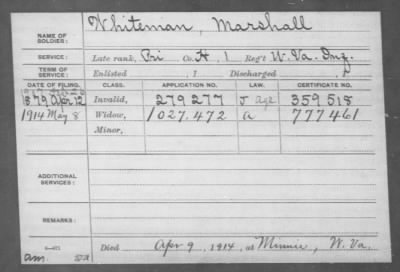 NAME OF SOLDIER: Whiteman, Marshall
SERVICE: Late rank, Pri Co. H, 1 Reg't W. Va. Inf.
TERM OF SERVICE: Enlisted , 1 Discharged , 1
DATE OF FILING. CLASS. APPLICATION NO. LAW. CERTIFICATE NO.
1879 Apr. 12 Invalid, 279277 J Age 359518
1914 May 8 Widow, 1027.472 a 777461
Minor,
ADDITIONAL SERVICES:
REMARKS:
Died Apr 9, 1914, at Minnie, W. Va.